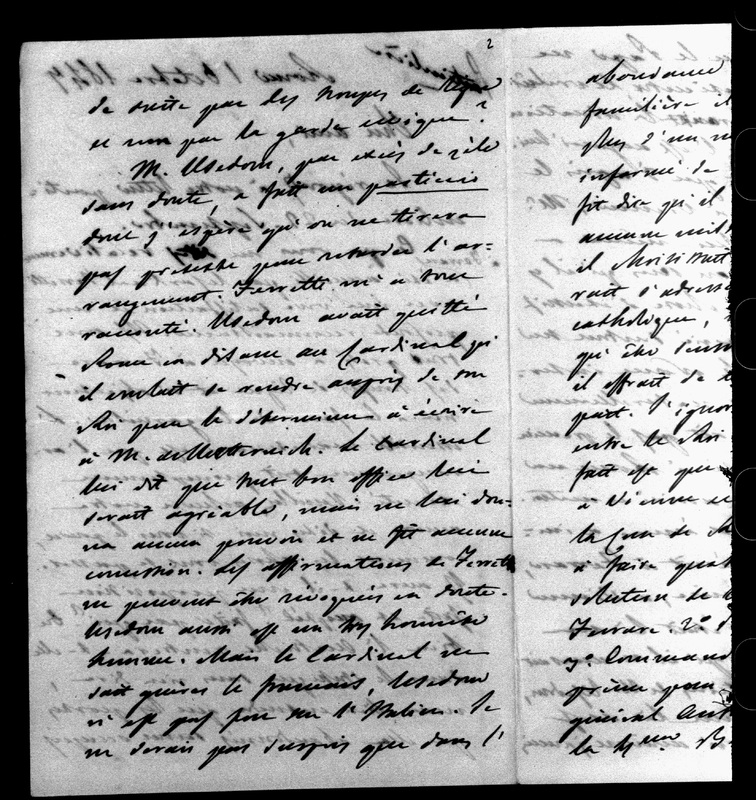 2
de suite par des troupes de ligne
et non par la garde civique?
M. Usedom, par excès de zèle
sans doute, a fait un pasticcio
dont j'espère qu'on ne tirera
pas prétexte pour retarder l'ar-
rangement. Ferretti m'a tout
raconté. Usedom avait quitté
Rome en disant au Cardinal qu'
il voulait se rendre auprès de son
Roi pour le déterminer à écrire
à M. de Metternich. Le Cardinal
lui dit que tout bon office lui
serait agréable, mais ne lui don-
na aucun pouvoir et ne fit aucune
concession. Les affirmations de Ferretti
ne peuvent être révoquées en doute.
Usedom aussi est un très honnête
homme. Mais le Cardinal ne
sait guères le français, Usedom
n'est pas fort sur l'Italien. Je
ne serais pas surpris que dans l'
abondance
familière il
plus d'un
informé de
fit dire qu'il
aucune
il
rait s'adresse
catholique,
qu'être
il offrait de
part. J'ignor
entre le Roi
fait est que
à Vienne
la Cour de
à faire
solution de
Ferrare. 2°
3° Command
prime pour
général
la